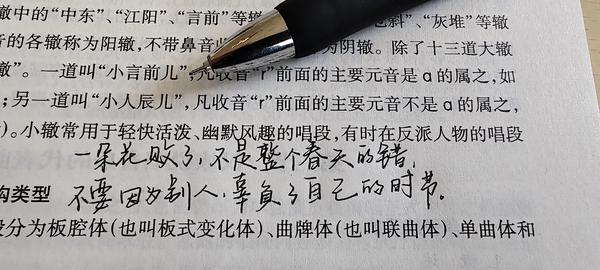 辙中的“中东”、“江阳”、“言前”等辙
斜”、“灰堆”等辙
音的各辙称为阳辙，不带鼻音
为阴辙。除了十三道大辙
辙”。一道叫“小言前儿”，凡收音“r”前面的主要元音是ɑ的属之，如
；另一道叫“小人辰儿”，凡收音“r”前面的主要元音不是ɑ的属之，
）。小辙常用于轻快活泼、幽默风趣的唱段，有时在反派人物的唱段
一朵花败了，不是整个春天的错，
构类型
不要因为别人，辜负了自己的时节。
分为板腔体（也叫板式变化体）、曲牌体（也叫联曲体）、单曲体和